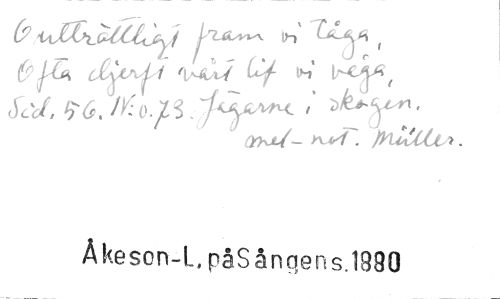 Outtröttligt fram vi tåga,
Ofta djerft vårt lif vi våga,
Sid. 56. N:o. 73. Jägarne i skogen.
mel-not. Müller.
Åkeson-L, påSångens.1880